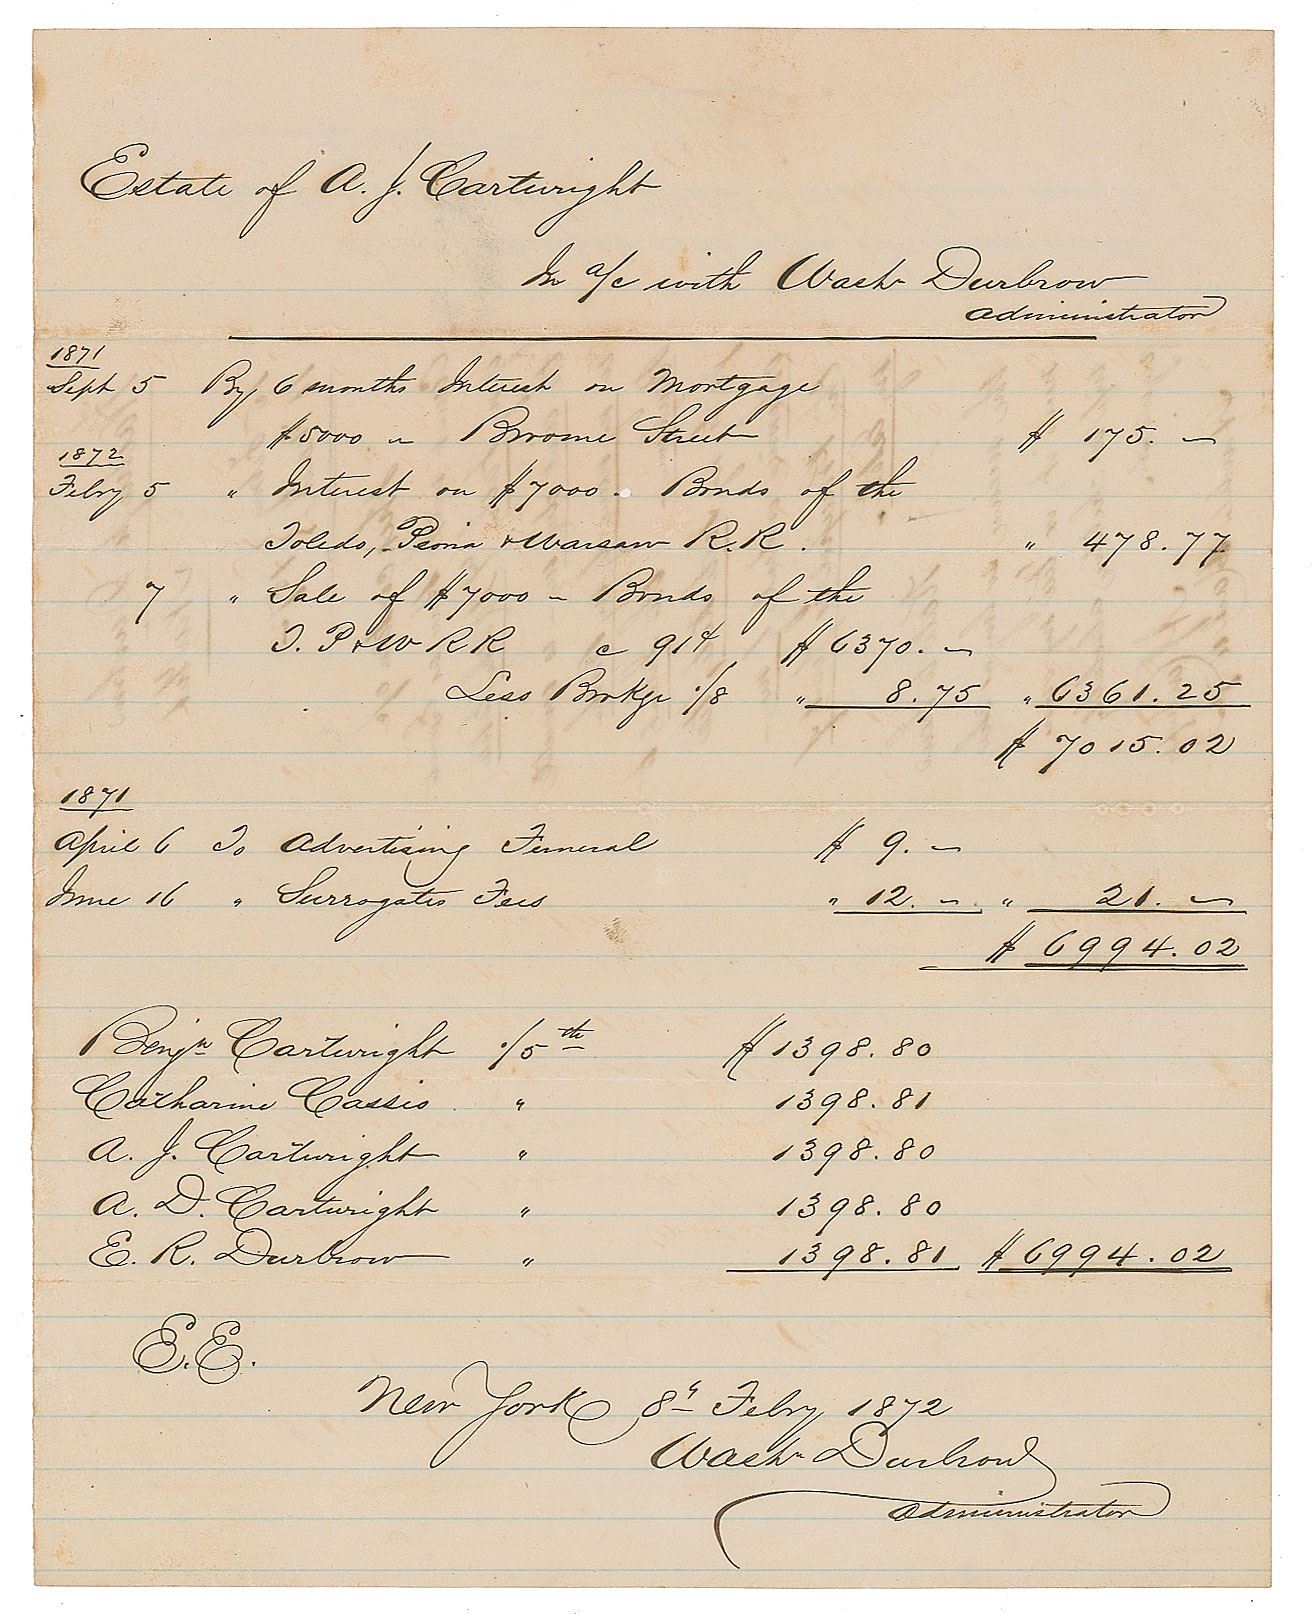 Estate of A. J. Cartwright
In a/c with Washn Durbrow
Administrator
1871
Sept 5 By 6 months Interest on Mortgage
$5000 – Broome Street $ 175. –
1872
Febry 5 " Interest on $7000 – Bonds of the
Toledo, Peoria & Warsaw R. R. " 478.77
7 " Sale of $7000 – Bonds of the
T. P & W R R @ 91¢ $ 6370. –
Less Brokge 1/8 " 8.75 " 6361.25
$ 7015.02
1871
April 6 To Advertising Funeral $ 9. –
June 16 " Surrogates Fees " 12. – " 21. –
$ 6994.02
Benjn Cartwright 1/5th $ 1398.80
Catharine Cassio " 1398.81
A. J. Cartwright " 1398.80
A. D. Cartwright " 1398.80
E. R. Durbrow " 1398.81 $ 6994.02
E.E.
New York 8th Febry 1872
Washn Durbrow
Administrator